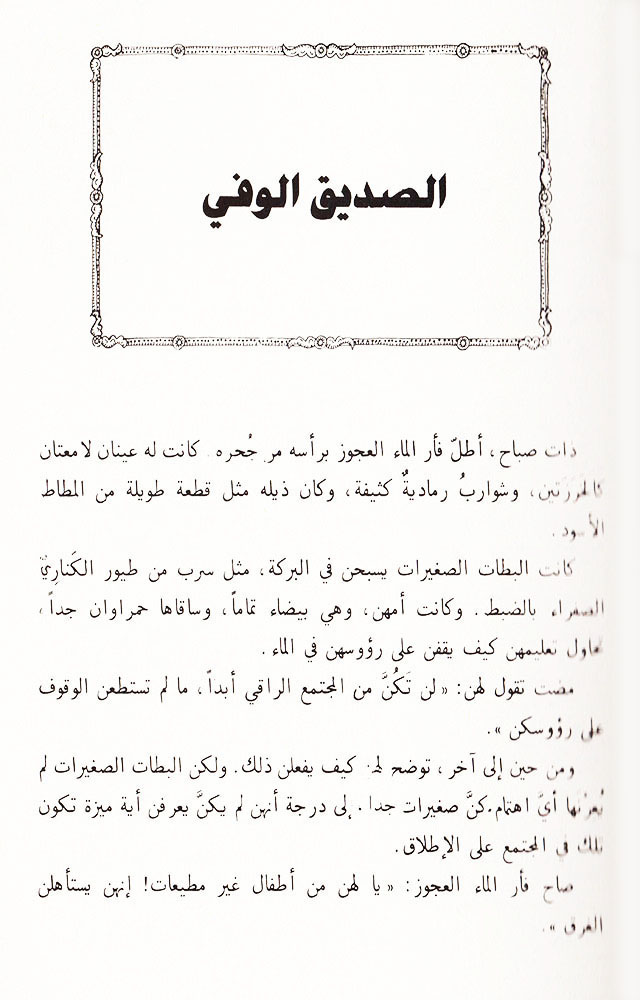 الصديق الوفي
ذات صباح، أطلّ فأر الماء العجوز برأسه من جُحره. كانت له عينان لامعتان
كالخرزتين، وشواربُ رماديةٌ كثيفة، وكان ذيله مثل قطعة طويلة من المطاط
الأسود.
كانت البطات الصغيرات يسبحن في البركة، مثل سرب من طيور الكَناريّ
الصفراء بالضبط. وكانت أمهن، وهي بيضاء تماماً، وساقاها حمراوان جداً،
تحاول تعليمهن كيف يقفن على رؤوسهن في الماء.
مضت تقول لهن: «لن تَكُنَّ من المجتمع الراقي أبداً، ما لم تستطعن الوقوف
على رؤوسكن».
ومن حين إلى آخر، توضح لهن كيف يفعلن ذلك. ولكن البطات الصغيرات لم
يُعرْنها أيَّ اهتمام. كنَّ صغيرات جداً. إلى درجة أنهن لم يكنَّ يعرفن أية ميزة تكون
تلك في المجتمع على الإطلاق.
صاح فأر الماء العجوز: «يا لهن من أطفال غير مطيعات! إنهن يستأهلن
الغرق».